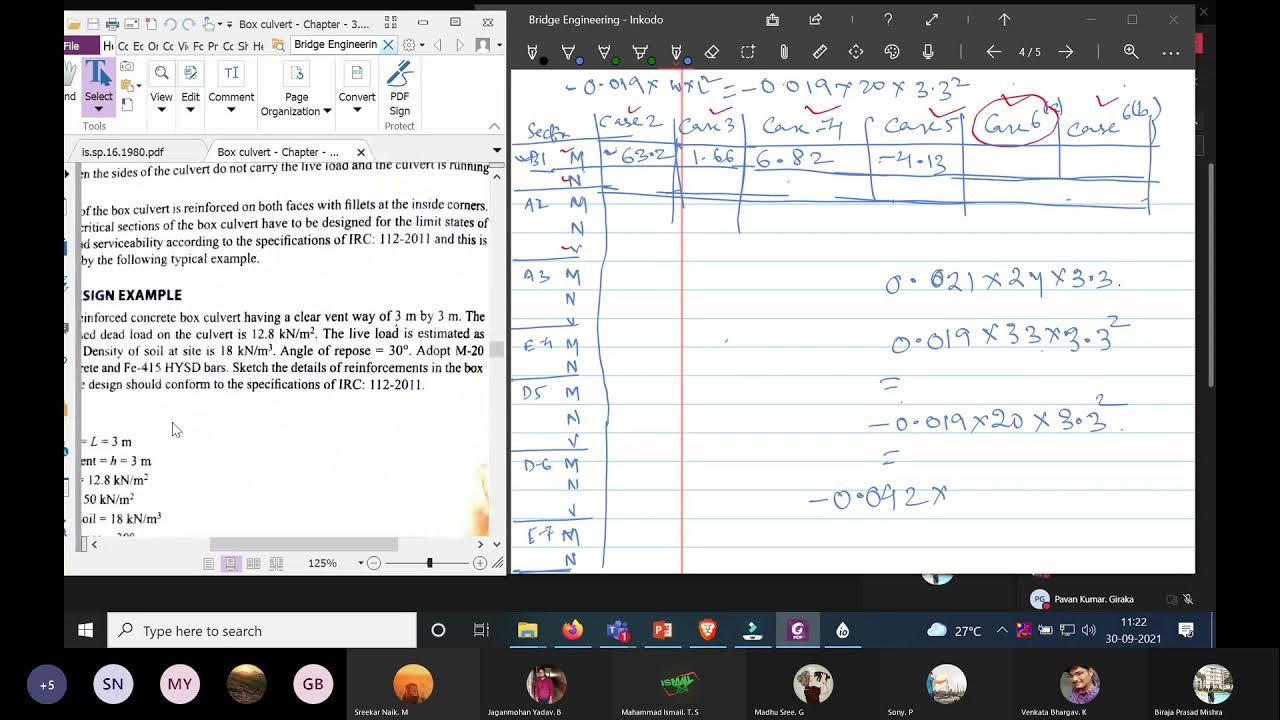 Box culvert - Chapter - 3....
File
Bridge Engineerin
Select
View
Edit
Comment
Page Organization
Convert
PDF Sign
Tools
Protect
is.sp.16.1980.pdf
Box culvert - Chapter - ...
en the sides of the culvert do not carry the live load and the culvert is running
of the box culvert is reinforced on both faces with fillets at the inside corners.
critical sections of the box culvert have to be designed for the limit states of
nd serviceability according to the specifications of IRC: 112-2011 and this is
by the following typical example.
SIGN EXAMPLE
einforced concrete box culvert having a clear vent way of 3 m by 3 m. The
sed dead load on the culvert is 12.8 kN/m². The live load is estimated as
Density of soil at site is 18 kN/m³. Angle of repose = 30°. Adopt M-20
rete and Fe-415 HYSD bars. Sketch the details of reinforcements in the box
e design should conform to the specifications of IRC: 112-2011.
= L = 3 m
ent = h = 3 m
= 12.8 kN/m²
50 kN/m²
oil = 18 kN/m³
125%
Bridge Engineering - Inkodo
4/5
-0.019 x w x L² = -0.019 x 20 x 3.3²
Section Case 2 Case 3 Case-4 Case 5 Case 6(a) Case 6(b)
B1 M -63.2 1.66 6.82 -4.13
N
A2 M
N
V
A3 M
N
V
E-4 M
N
D5 M
N
V
D-6 M
N
V
E-7 M
N
0.021 x 24 x 3.3
0.019 x 33 x 3.3²
=
-0.019 x 20 x 3.3²
=
-0.042 x
PG Pavan Kumar. Giraka
Type here to search
27°C
11:22
30-09-2021
+5
SN
MY
GB
Sreekar Naik. M
Jaganmohan Yadav. B
ISMAIL
Mahammad Ismail. T. S
Madhu Sree. G
Sony. P
Venkata Bhargav. K
Biraja Prasad Mishra